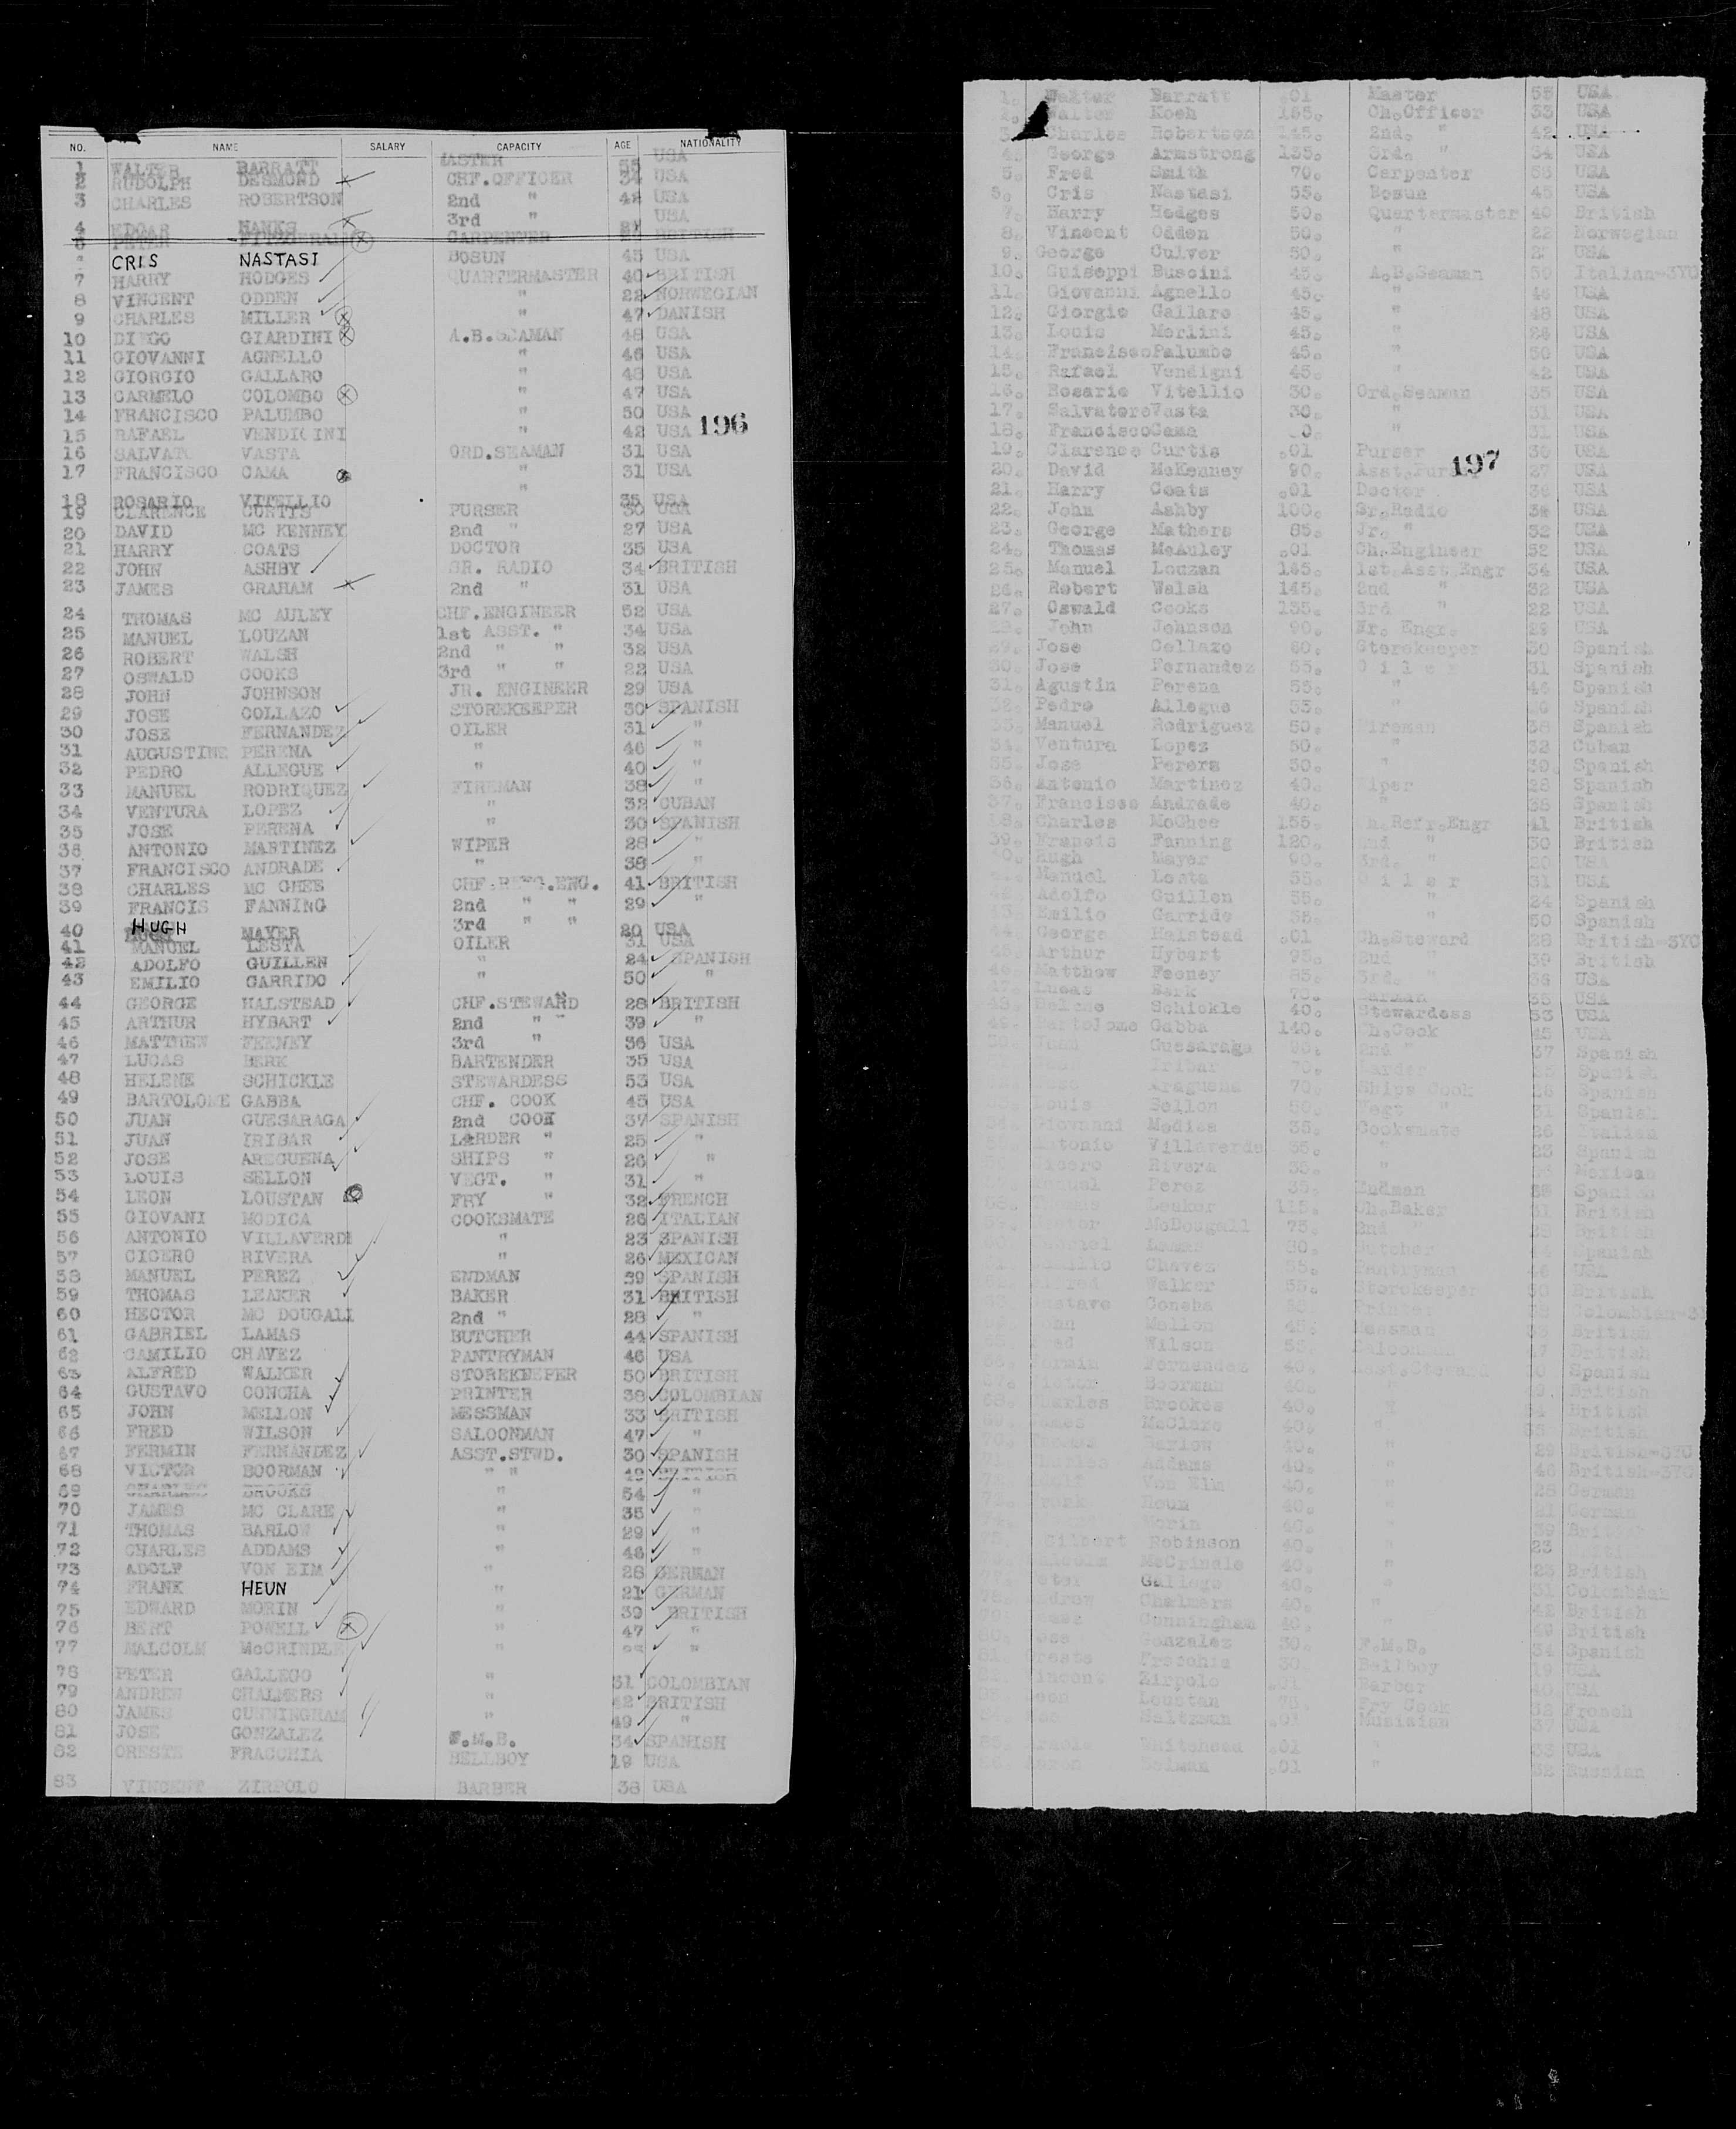 NO. NAME SALARY CAPACITY AGE NATIONALITY
1 WALTER BARRATT MASTER 55 USA
2 RUDOLPH DESMOND CHF.OFFICER 34 USA
3 CHARLES ROBERTSON 2nd " 42 USA
4 EDGAR HANKS 3rd " USA
PETER CARPENTER BRITISH
CRIS NASTASI BOSUN 45 USA
7 HARRY HODGES QUARTERMASTER 40 BRITISH
8 VINCENT ODDEN " 22 NORWEGIAN
9 CHARLES MILLER " 47 DANISH
10 DIEGO GIARDINI A.B.SEAMAN 48 USA
11 GIOVANNI AGNELLO " 46 USA
12 GIORGIO GALLARO " 48 USA
13 CARMELO COLOMBO " 47 USA
14 FRANCISCO PALUMBO " 50 USA
196
15 RAFAEL VENDIGINI " 42 USA
16 SALVATO VASTA ORD.SEAMAN 31 USA
17 FRANCISCO CAMA " 31 USA
18 ROSARIO VITELLIO " 35 USA
19 CLARENCE CURTIS PURSER 30 USA
20 DAVID MC KENNEY 2nd " 27 USA
21 HARRY COATS DOCTOR 35 USA
22 JOHN ASHBY SR. RADIO 34 BRITISH
23 JAMES GRAHAM 2nd " 31 USA
24 THOMAS MC AULEY CHF.ENGINEER 52 USA
25 MANUEL LOUZAN 1st ASST. " 34 USA
26 ROBERT WALSH 2nd " " 32 USA
27 OSWALD COOKS 3rd " " 22 USA
28 JOHN JOHNSON JR. ENGINEER 29 USA
29 JOSE COLLAZO STOREKEEPER 30 SPANISH
30 JOSE FERNANDEZ OILER 31 "
31 AUGUSTINE PERENA " 46 "
32 PEDRO ALLEGUE " 40 "
33 MANUEL RODRIQUEZ FIREMAN 38 "
34 VENTURA LOPEZ " 32 CUBAN
35 JOSE PERENA " 30 SPANISH
36 ANTONIO MARTINEZ WIPER 28 "
37 FRANCISCO ANDRADE " 38 "
38 CHARLES MC GHEE CHF.REFG.ENG. 41 BRITISH
39 FRANCIS FANNING 2nd " " 29 "
40 HUGH MAYER 3rd " " 20 USA
41 MANUEL LESTA OILER 31 USA
42 ADOLFO GUILLEN " 24 SPANISH
43 EMILIO GARRIDO " 50 "
44 GEORGE HALSTEAD CHF.STEWARD 28 BRITISH
45 ARTHUR HYBART 2nd " 39 "
46 MATTHEW FEENEY 3rd " 36 USA
47 LUCAS BERK BARTENDER 35 USA
48 HELENE SCHICKLE STEWARDESS 53 USA
49 BARTOLOME GABBA CHF. COOK 45 USA
50 JUAN GUESARAGA 2nd COOK 37 SPANISH
51 JUAN IRIBAR LARDER " 25 "
52 JOSE AREGUENA SHIPS " 26 "
53 LOUIS SELLON VEGT. " 31 "
54 LEON LOUSTAN FRY " 32 FRENCH
55 GIOVANI MODICA COOKSMATE 26 ITALIAN
56 ANTONIO VILLAVERDE " 23 SPANISH
57 CICERO RIVERA " 26 MEXICAN
58 MANUEL PEREZ ENDMAN 39 SPANISH
59 THOMAS LEAKER BAKER 31 BRITISH
60 HECTOR MC DOUGALL 2nd " 28 "
61 GABRIEL LAMAS BUTCHER 44 SPANISH
62 CAMILIO CHAVEZ PANTRYMAN 46 USA
63 ALFRED WALKER STOREKEEPER 50 BRITISH
64 GUSTAVO CONCHA PRINTER 38 COLOMBIAN
65 JOHN MELLON MESSMAN 33 BRITISH
66 FRED WILSON SALOONMAN 47 "
67 FERMIN FERNANDEZ ASST.STWD. 30 SPANISH
68 VICTOR BOORMAN " " 49 BRITISH
69 CHARLES BROOKS " 54 "
70 JAMES MC CLARE " 35 "
71 THOMAS BARLOW " 29 "
72 CHARLES ADDAMS " 46 "
73 ADOLF VON EIM " 28 GERMAN
74 FRANK HEUN " 21 GERMAN
75 EDWARD MORIN " 39 BRITISH
76 BERT POWELL " 47 "
77 MALCOLM McCRINDLE " "
78 PETER GALLEGO " 31 COLOMBIAN
79 ANDREW CHALMERS " 42 BRITISH
80 JAMES CUNNINGHAM " 49 "
81 JOSE GONZALEZ F.M.B. 34 SPANISH
82 ORESTE FRACCHIA BELLBOY 19 USA
83 VINCENT ZIRPOLO BARBER 38 USA
1. Walter Barratt .01 Master 55 USA
2. Walter Koch 165. Ch.Officer 33 USA
3. Charles Robertson 145. 2nd. " 42 USA
4. George Armstrong 135. 3rd. " 34 USA
5. Fred Smith 70. Carpenter USA
6. Cris Nastasi 55. Bosun 45 USA
7. Harry Hodges 50. Quartermaster 40 British
8. Vincent Odden 50. " 22 Norwegian
9. George Culver 50. " USA
10. Guiseppi Buscini 45. A.B.Seaman 50 Italian-3YC
11. Giovanni Agnello 45. " 46 USA
12. Giorgio Gallaro 45. " 48 USA
13. Louis Merlini 45. " USA
14. Francisco Palumbo 45. " 50 USA
15. Rafael Vendigni 45. " 42 USA
16. Rosario Vitellio 30. Ord.Seaman 35 USA
17. Salvatore Vasta 30. " 31 USA
18. Francisco Cama " 31 USA
19. Clarence Curtis .01 Purser 30 USA
197
20. David McKenney 90. Asst.Purser 27 USA
21. Harry Coats .01 Doctor USA
22. John Ashby 100. Sr.Radio 34 USA
23. George Mathers 85. Jr. " 32 USA
24. Thomas McAuley .01 Ch.Engineer 52 USA
25. Manuel Louzan 165. 1st.Asst.Engr 34 USA
26. Robert Walsh 145. 2nd " 32 USA
27. Oswald Cooks 135. 3rd " 22 USA
28. John Johnson 90. Jr. Engr. 29 USA
29. Jose Collazo 60. Storekeeper 30 Spanish
30. Jose Fernandez 55. Oiler 31 Spanish
31. Agustin Perena 55. " 46 Spanish
32. Pedro Allegue 55. " Spanish
33. Manuel Rodriguez 50. Fireman 38 Spanish
34. Ventura Lopez 50. " 32 Cuban
35. Jose Perera 50. " 30 Spanish
36. Antonio Martinez 40. Wiper 28 Spanish
37. Francisco Andrade 40. " 38 Spanish
38. Charles McGhee 155. Ch.Refr.Engr 41 British
39. Francis Fanning 120. 2nd " 30 British
40. Hugh Mayer 90. 3rd. " 20 USA
Manuel Lesta 55. Oiler 31 USA
Adolfo Guillen 55. " 24 Spanish
Emilio Garrido 55. " 50 Spanish
44. George Halstead .01 Ch.Steward 28 British-3YC
45. Arthur Hybart 95. 2nd " 39 British
46. Matthew Feeney 85. 3rd. " 36 USA
47. Lucas Berk 75. Barman 35 USA
48. Helene Schickle 40. Stewardess 53 USA
49. Bartolome Gabba 140. Ch.Cook 45 USA
Juan Guesaraga 95. 2nd " 37 Spanish
Iribar 70. Larder Spanish
Araguena 70. Ships Cook 26 Spanish
Louis Sellon 50. Vegt " 31 Spanish
Giovanni Modica 35. Cooksmate 26 Italian
Antonio Villaverde 35. " 23 Spanish
Cicero Rivera 35. " Mexican
Manual Perez 35. Endman Spanish
Thomas Leaker 115. Ch.Baker 31 British
Hector McDougall 75. 2nd 28 British
Lamas 80. Butcher 44 Spanish
Chavez 55. Pantryman 46 USA
Alfred Walker 55. Storekeeper 50 British
Gustavo Concha Printer 38 Colombian-3Y
John Mellon 45. Messman 33 British
Fred Wilson 55. Saloonman 47 British
Fermin Fernandez 40. Asst.Steward Spanish
Victor Boorman 40. " British
68. Charles Brookes 40. " 54 British
69. James McClare 40. " 35 British
Barlow 40. " 29 British-3YC
Charles Addams 40. " 46 British-3YC
Von Eim 40. " 28 German
Frank Heun 40. " 21 German
Morin 40. " 39 British
Gilbert Robinson 40. " 23
Malcolm McCrindle 40. " British
Peter Gallego 40. " 31 Colombian
Andrew Chalmers 40. " 42 British
James Cunningham 40. 49 British
80. Jose Gonzalez 30. F.M.B. 34 Spanish
81. Oreste Fracchia 30. Bellboy 19 USA
Vincent Zirpolo .01 Barber USA
Leon Loustan 75. Fry Cook 32 French
Saltzman .01 Musician 37 USA
Whitehead .01 " 33 USA
Selman .01 " 32 Russian